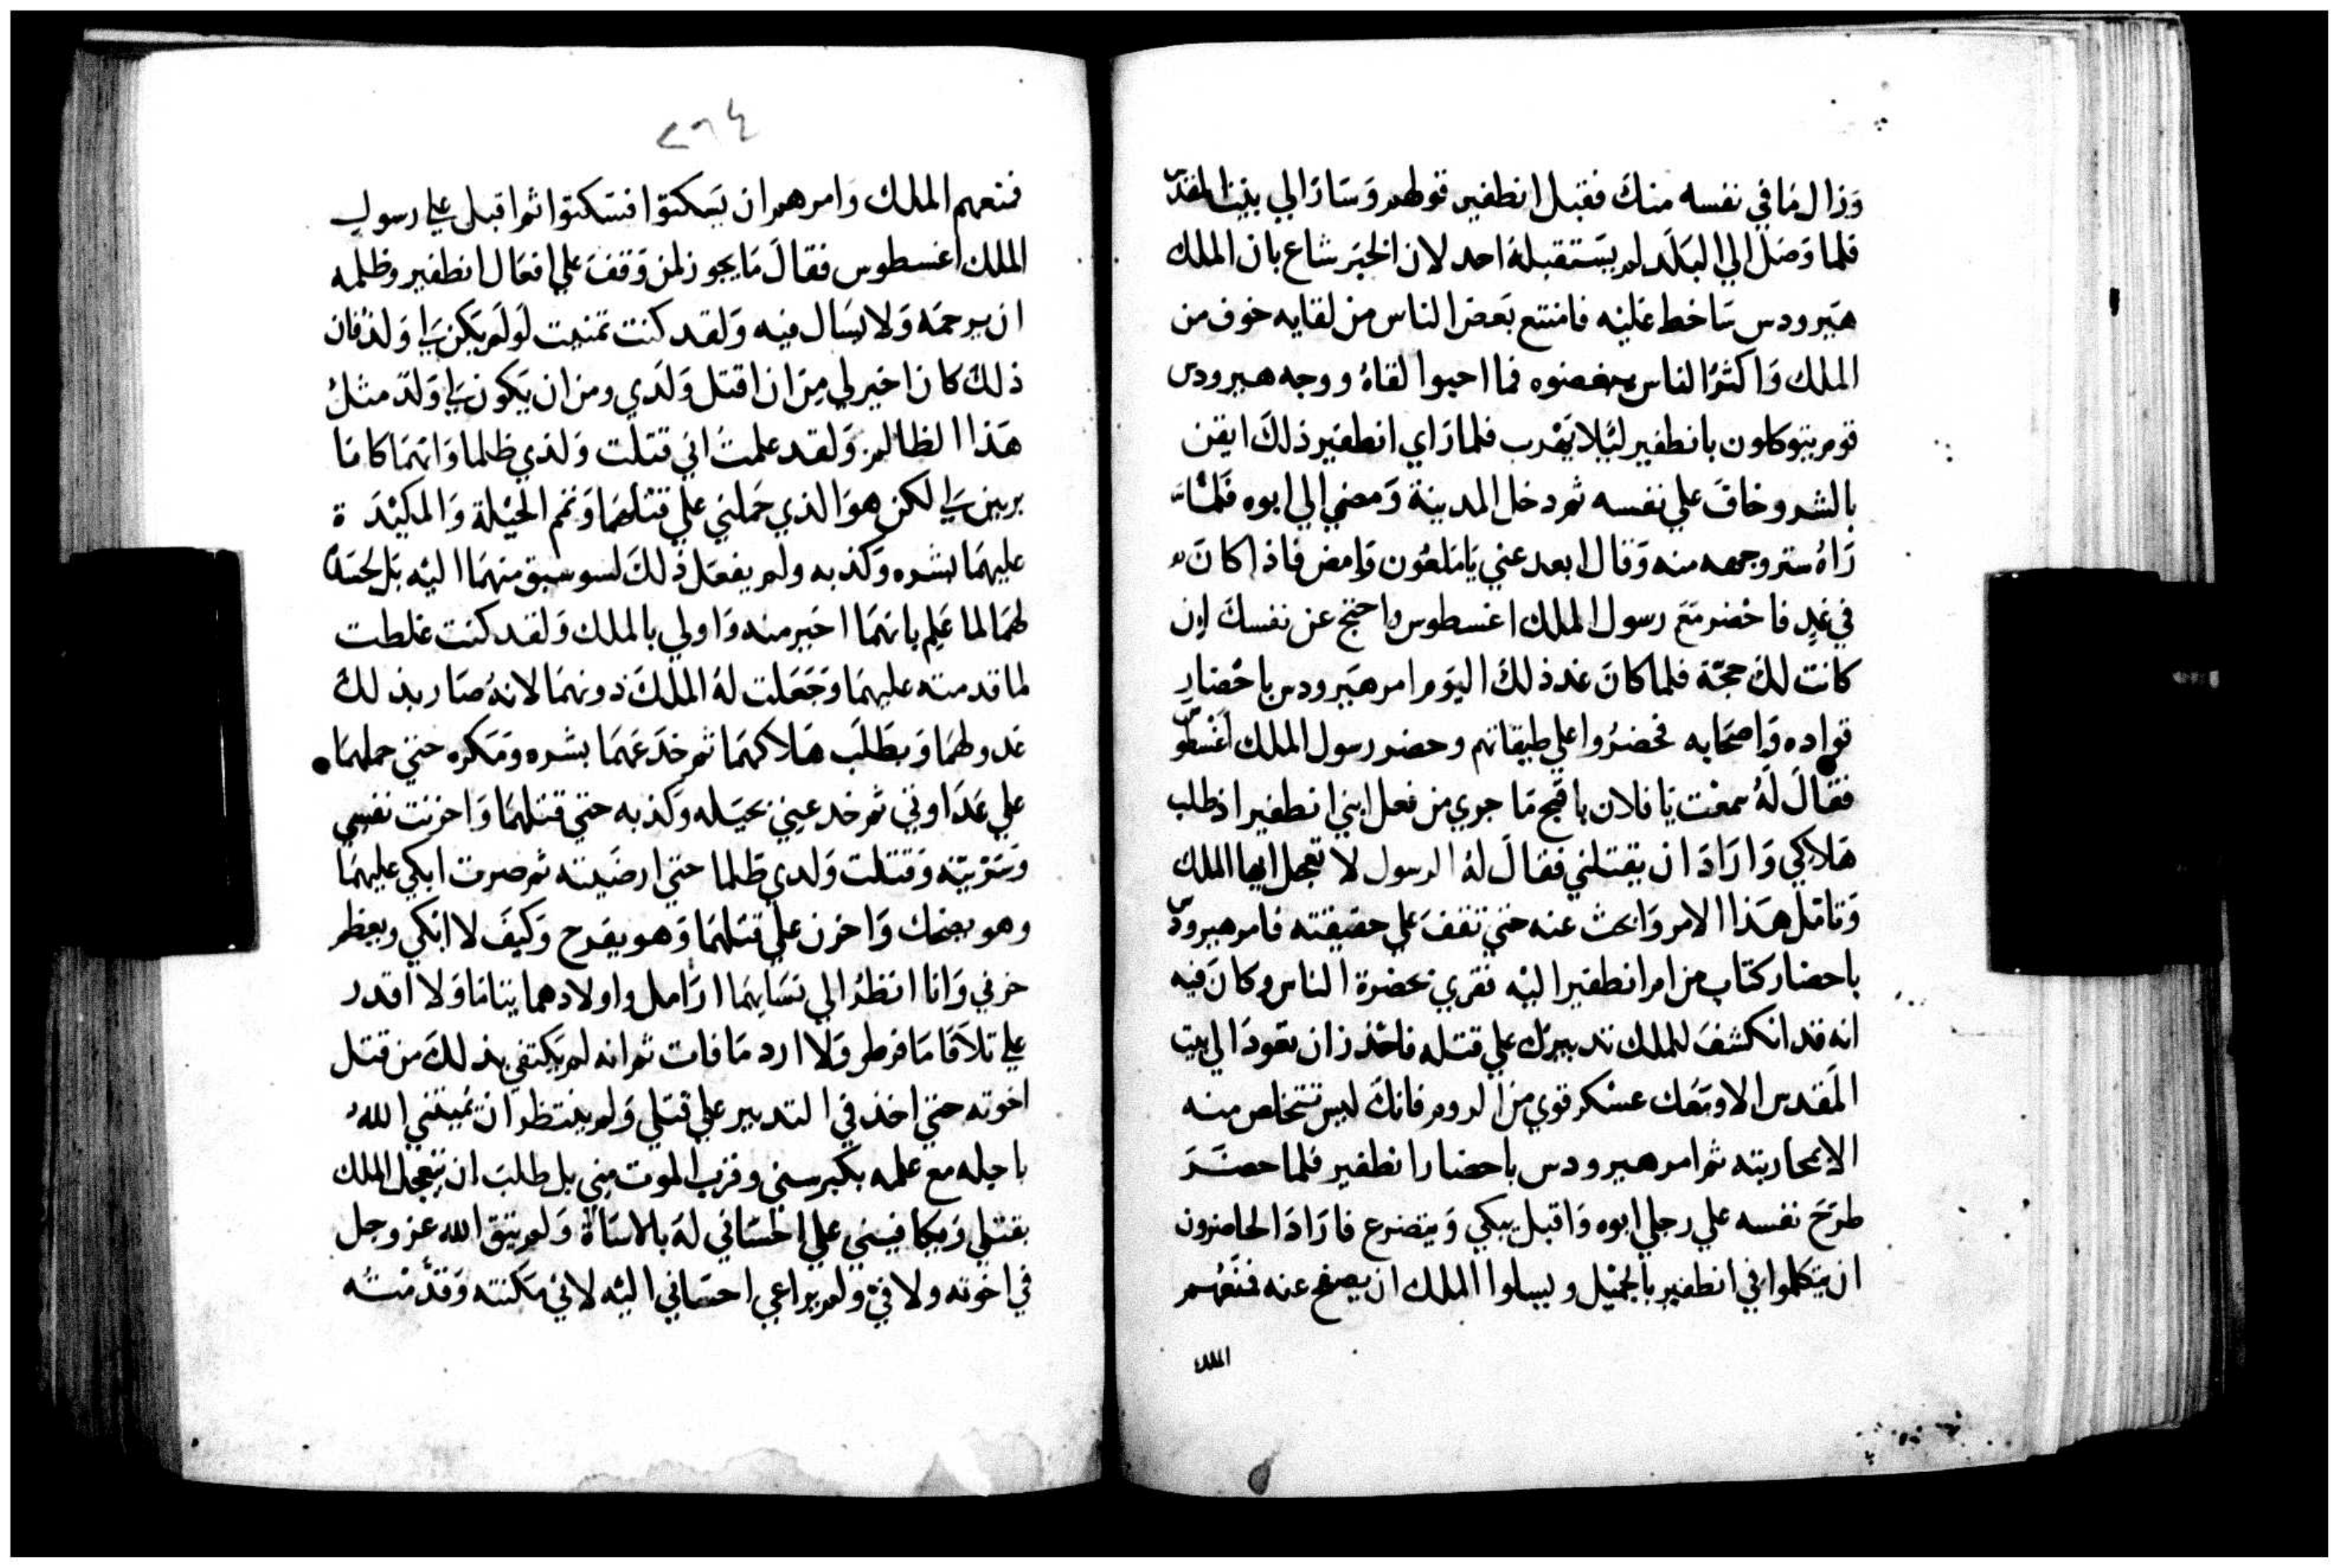 وزال ما في نفسه منك فقبل انطفير قولهم وسار الي بيت المقدس
فلما وصل الي البلد لم يستقبله احد لان الخبر شاع بان الملك
هيرودس ساخط عليه فامتنع بعض الناس من لقايه خوف من
الملك واكثر الناس بغضوه فما احبوا لقاه ووجه هيرودس
قوم يتوكلون بانطفير ليلا يهرب فلما راي انطفير ذلك ايقن
بالشر وخاف علي نفسه ثم دخل المدينة ومضي الي ابوه فلما
راه ستر وجهه منه وقال ابعد عني يا ملعون وامض فاذا كان
في غد فاحضر مع رسول الملك اغسطوس واحتج عن نفسك ان
كانت لك حجة فلما كان غد ذلك اليوم امر هيرودس باحضار
قواده واصحابه فحضروا علي طبقاتهم وحضر رسول الملك اغسطوس
فقال له سمعت يا فلان باقبح ما جري من فعل ابني انطفير اذ طلب
هلاكي واراد ان يقتلني فقال له الرسول لا تعجل ايها الملك
وتامل هذا الامر وابحث عنه حتي تقف علي حقيقته فامر هيرودس
باحضار كتاب من امر انطفير اليه نقري بحضرة الناس وكان فيه
انه قد انكشف للملك تدبيرك علي قتله فاحذر ان تعود الي بيت
المقدس الا ومعك عسكر قوي من الروم فانك ليس تتخلص منه
الا بمحاربته ثم امر هيرودس باحضار انطفير فلما حضر
طرح نفسه علي رجلي ابوه واقبل يبكي ويتضرع فاراد الحاضرون
ان يتكلموا في انطفير بالجميل ويسلوا الملك ان يصفح عنه فمنعهم
الملك
٢٦٤
فمنعهم الملك وامرهم ان يسكتوا فسكتوا ثم اقبل علي رسول
الملك اغسطوس فقال ما يجوز لمن وقف علي افعال انطفير وظلمه
ان يرحمه ولا يسال فيه ولقد كنت تمنيت لو لم يكن لي ولد فان
ذلك كان اخير لي من ان اقتل ولدي ومن ان يكون لي ولد مثل
هذا الظالم ولقد علمت اني قتلت ولدي ظلما وانهما كانا
بريين لي لكن هو الذي حملني علي قتلهما وتمم الحيلة والمكيدة
عليهما بشره وكذبه ولم يفعل ذلك لسو سبق منهما اليه بل لحسده
لهما لما علم بانهما اخير منه واولي بالملك ولقد كنت غلطت
لما قدمته عليهما وجعلت له الملك دونهما لانه صار بذلك
عدو لهما ويطلب هلاكهما ثم خدعهما بشره ومكره حتي حملهما
علي عداوتي ثم خدعيني بحيله وكذبه حتي قتلهما واحزنت نفسي
وسررته وقتلت ولدي ظلما حتي ارضيته ثم صرت ابكي عليهما
وهو يضحك واحزن علي قتلهما وهو يفرح وكيف لا ابكي ويعظم
حزني وانا انظر الي نسايهما ارامل واولادهما يتاما ولا اقدر
علي تلافا ما فرط ولا ارد ما فات ثم انه لم يكتفي بذلك من قتل
اخوته حتي اخذ في التدبير علي قتلي ولم ينتظر ان يميتني الله
باجله مع علمه بكبر سني وقرب الموت مني بل طلب ان يتعجل الملك
بقتلي ويكافيني علي احساني له بالاساة ولم يتق الله عز وجل
في اخوته ولا في ولم يراعي احساني اليه لاني مكنته وقدمته